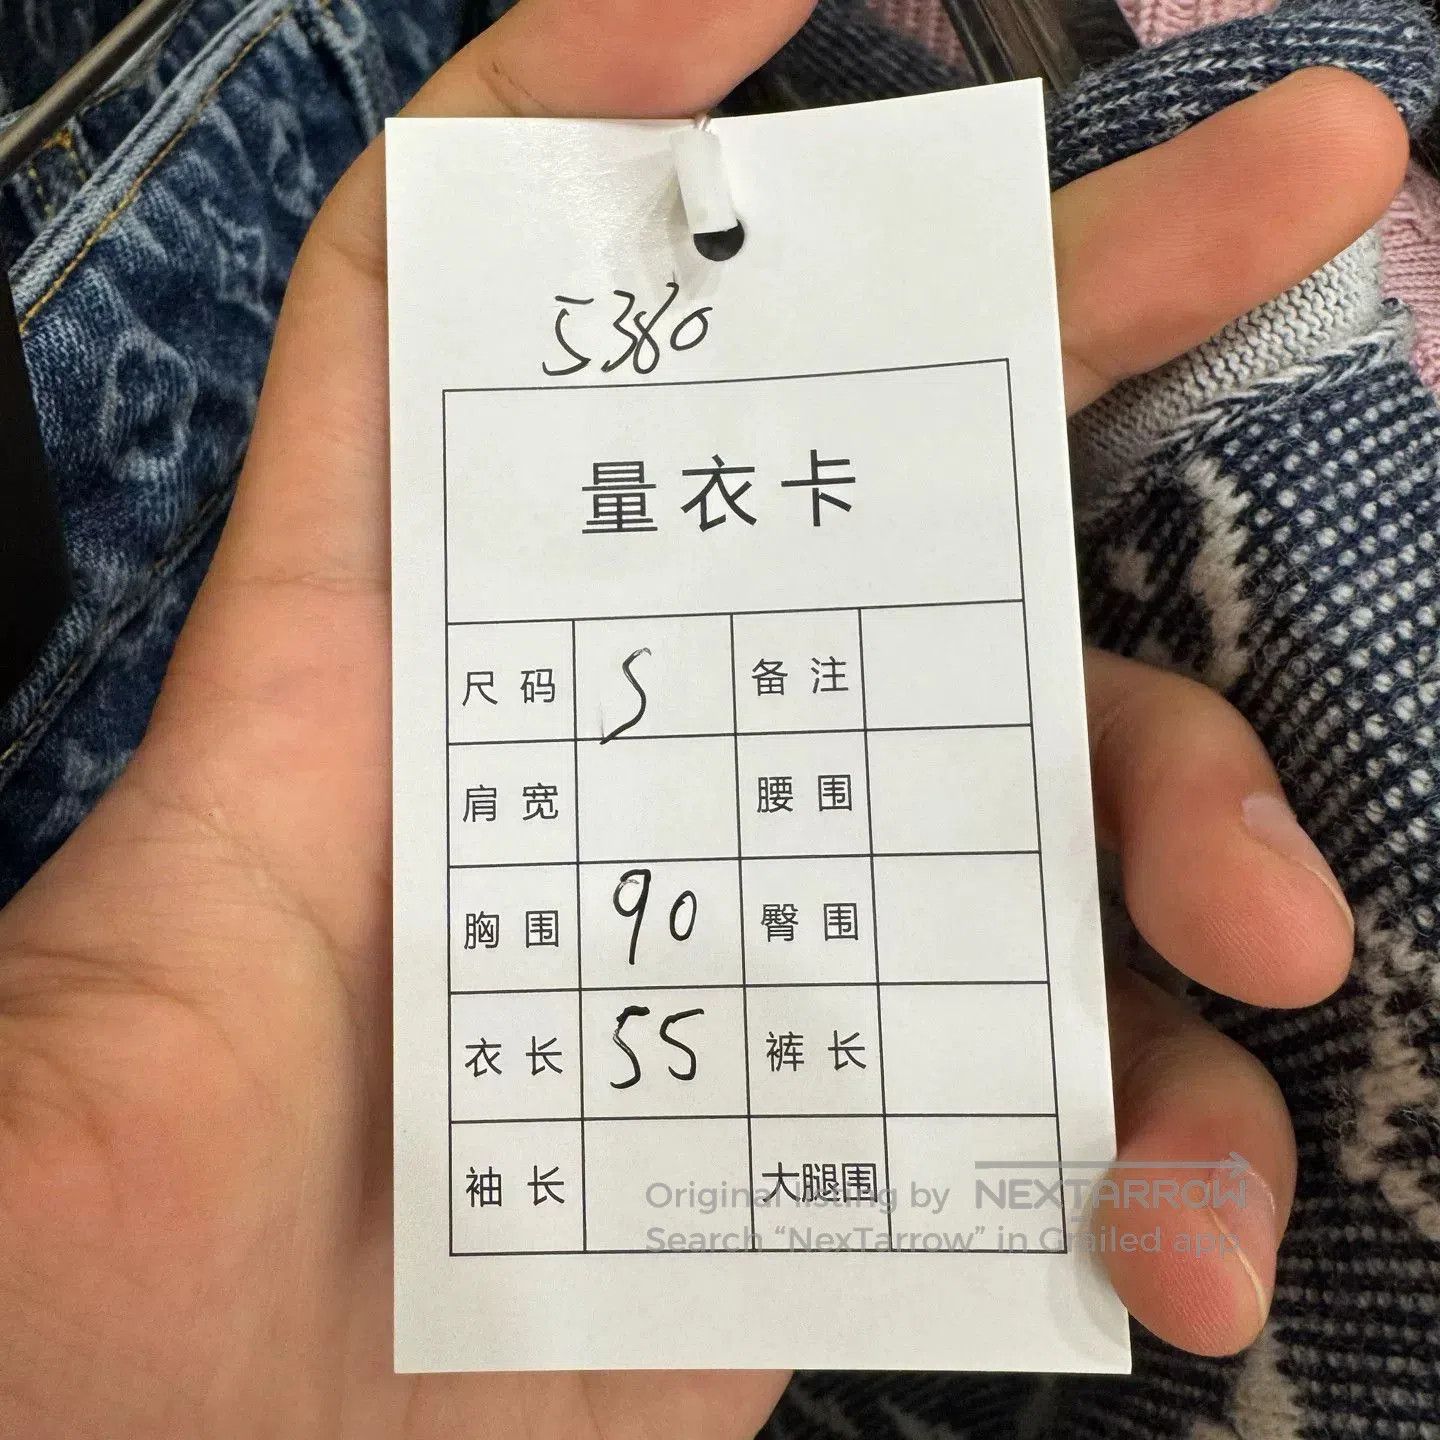 5380
量衣卡
尺码 S 备注
肩宽 腰围
胸围 90 臀围
衣长 55 裤长
袖长 大腿围
Original listing by NEXTARROW
Search “NexTarrow” in Grailed app